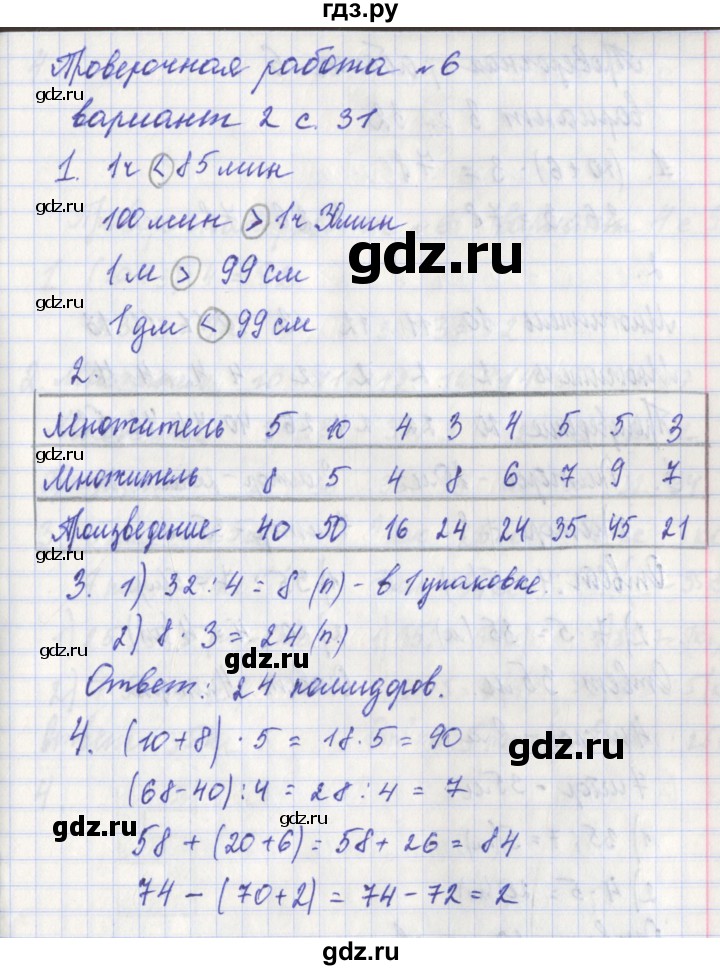 гдз.ру
Проверочная работа № 6
gdz.ru
gdz.ru
вариант 2 с. 31
1. 1ч < 85 мин
gdz.ru
100 мин > 1ч 30мин
gdz.ru
1 м > 99 см
gdz.ru
1 дм < 99 см
2.
Множитель 5 10 4 3 4 5 5 3
gdz.ru
gdz.ru
Множитель 8 5 4 8 6 7 9 7
Произведение 40 50 16 24 24 35 45 21
gdz.ru
gdz.ru
3. 1) 32 : 4 = 8 (п) - в 1 упаковке.
2) 8 · 3 = 24 (п.)
gdz.ru
gdz.ru
Ответ: 24 помидоров.
4. (10+8) · 5 = 18·5 = 90
gdz.ru
(68-40) : 4 = 28 : 4 = 7
gdz.ru
gdz.ru
58 + (20+6) = 58 + 26 = 84
74 - (70+2) = 74 - 72 = 2
gdz.ru
gdz.ru
gdz.ru